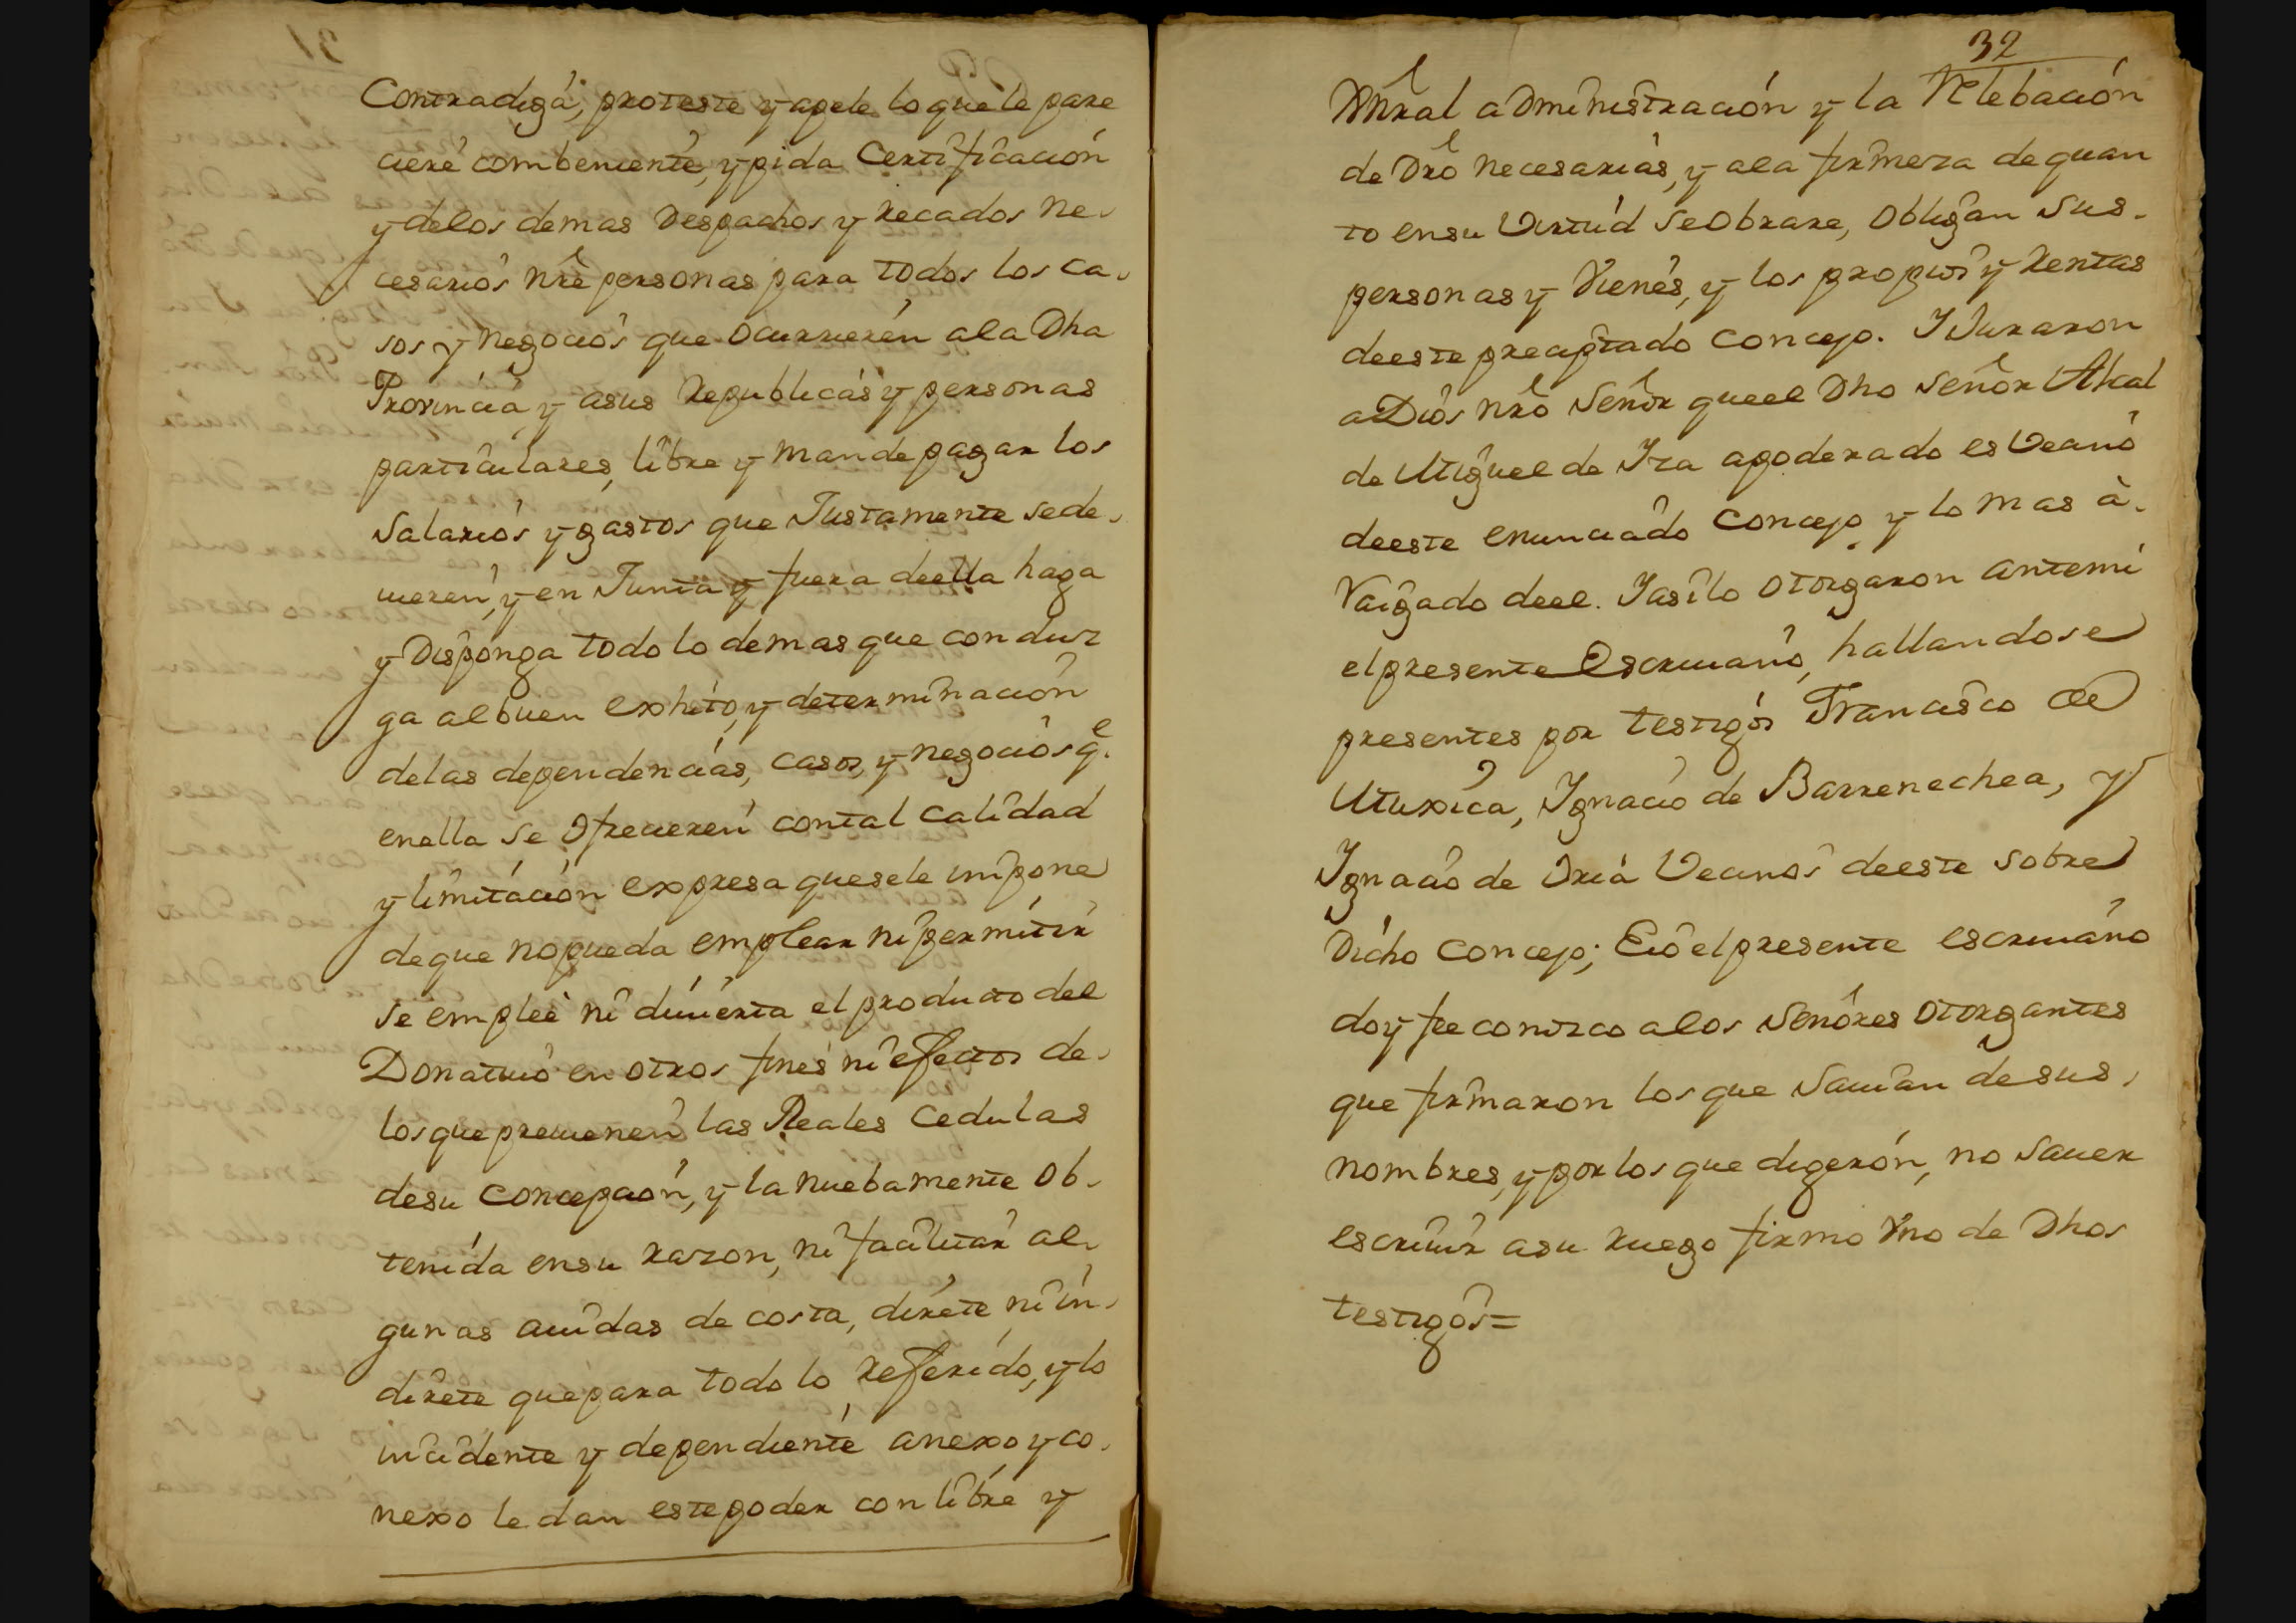 Contradiga, proteste y apele lo que le pare
ciere combeniente, y pida Certificación
y delos demas Despachos y recados ne-
cesarios nrê personas para todos los ca-
sos y negocios que ocurrieren ala Dha
Provincia y asus Republicas y personas
particulares, libre y mande pagar los
Salarios y gastos que Justamente sede-
vieren, y en Junta y fuera deella haga
y Disponga todo lo demas que conduz
ga albuen exhito, y determinación
delas dependencias, casos, y negocios q.e
enella se ofrecieren contal calidad
y limitación expresa quesele impone
deque nopueda emplear ni permitir
se empleè ni divierta el producto del
Donativo en otros fines ni efectos de-
los que previenen las Reales Cedulas
desu Concepcion, y la nuebamente ob-
tenida ensu razon, ni facilitar al-
gunas auidas de costa, direte ni in-
direte que para todo lo referido, y lo
incidente y dependiente anexo y co-
nexo le dan este poder con libre y
32
Xnral administración y la Relebación
de Drô necesarias, y ala firmeza de quan
to ensu Virtud seobrare, obligan sus-
personas y Vienes, y los propios y rentas
deeste precitado Concejo. Y Juraron
a Dios nrô Señor queel Dho Señor Alcal
de Miguel de Yza apoderado es Vecino
deeste enunciado Concejo y lo mas à-
Raigado deel. Y asilo otorgaron antemi
elpresente Escrivano, hallandose
presentes por testigos Francisco de
Muxica, Ygnacio de Barrenechea, y
Ygnacio de Vria Vecinos deeste sobre
Dicho Concejo; E io elpresente escrivano
doy fee conozco alos Señores otorgantes
que firmaron los que Savian desus-
nombres, y por los que digeron, no Saver
escrivir asu ruego firmo Vno de Dhos
testigos=